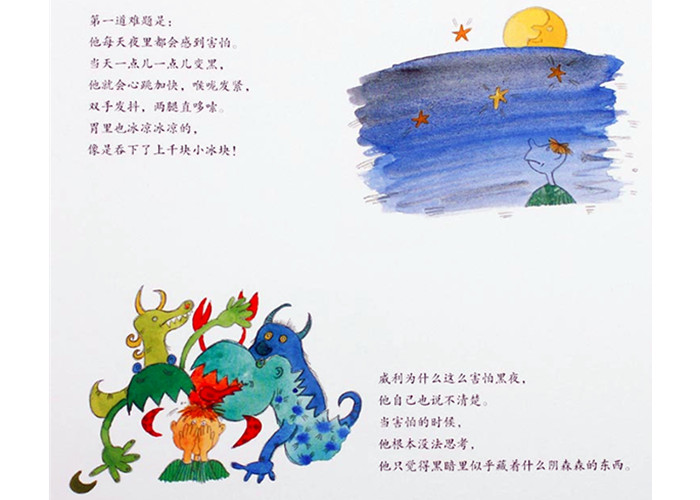 第一道难题是：
他每天夜里都会感到害怕。
当天一点儿一点儿变黑，
他就会心跳加快，喉咙发紧，
双手发抖，两腿直哆嗦。
胃里也冰凉冰凉的，
像是吞下了上千块小冰块！
威利为什么这么害怕黑夜，
他自己也说不清楚。
当害怕的时候，
他根本没法思考，
他只觉得黑暗里似乎藏着什么阴森森的东西。